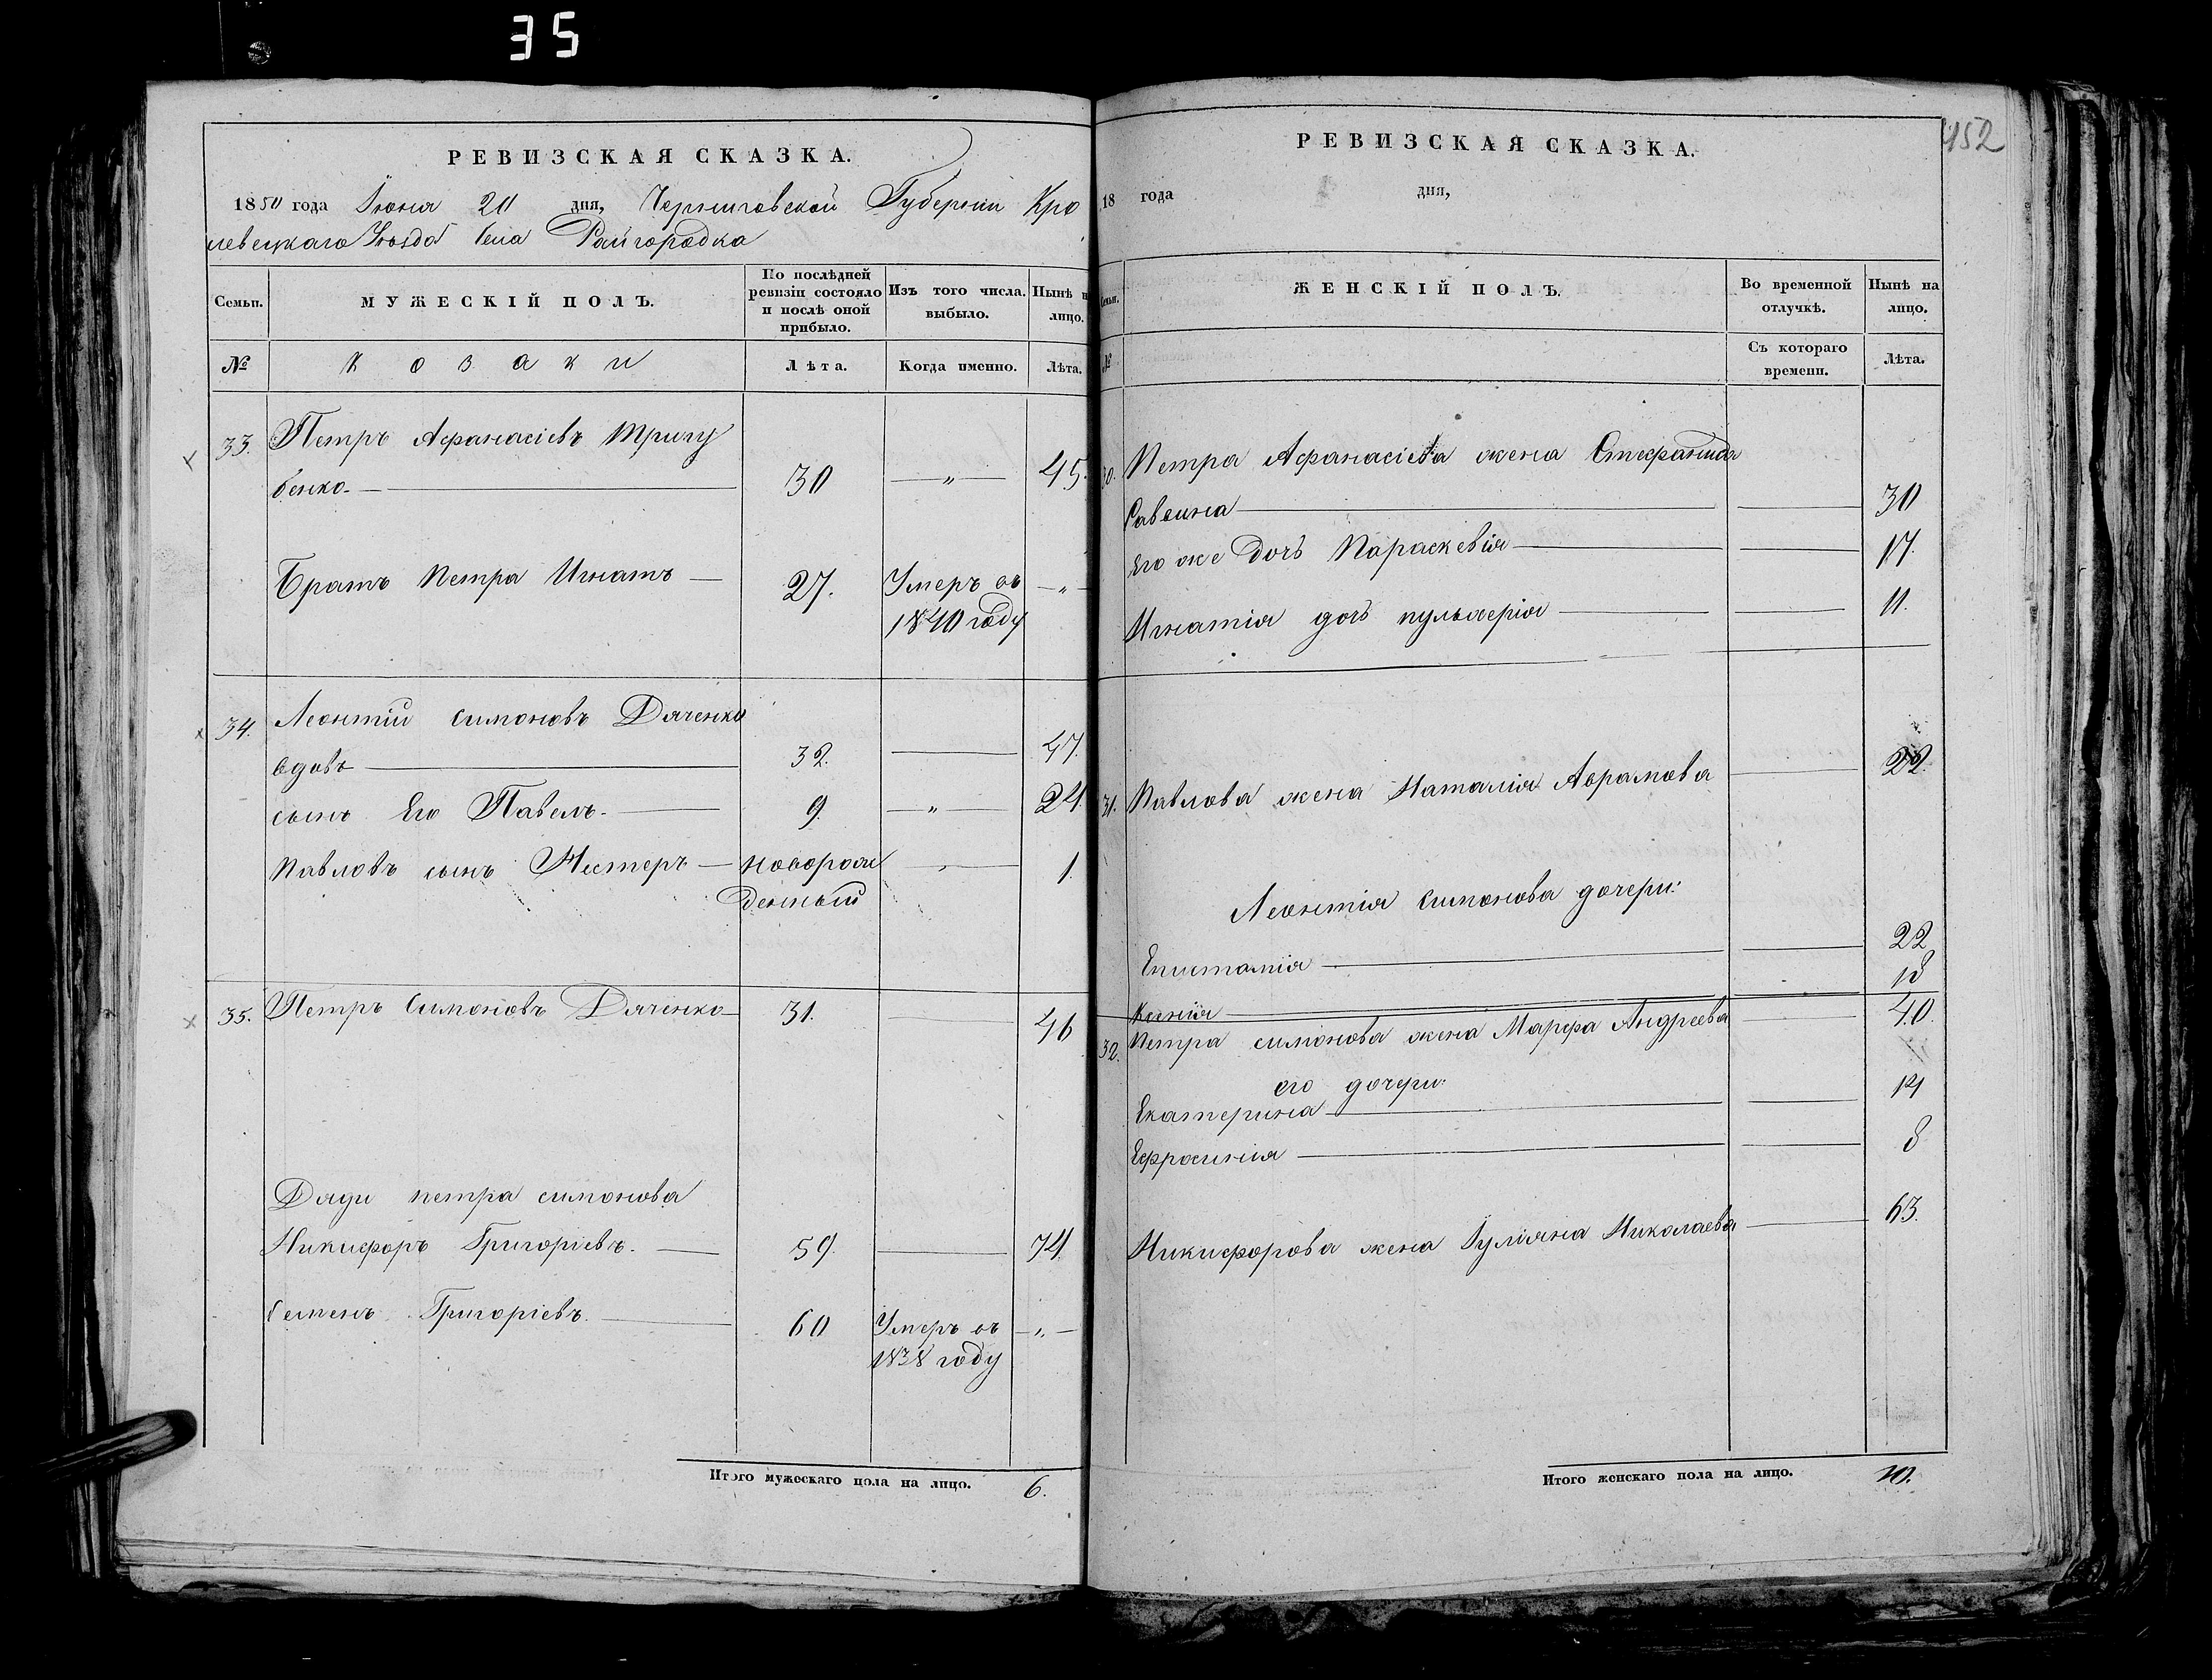 35
РЕВИЗСКАЯ СКАЗКА.
1850 года Іюня 20 дня, Черниговской Губерніи Кро
левецкаго Уѣзда Села Райгородка
Семьи.
МУЖЕСКІЙ ПОЛЪ.
По послѣдней ревизіи состояло и послѣ оной прибыло.
Изъ того числа выбыло.
Нынѣ на лицо.
№
козаки
Лѣта.
Когда именно.
Лѣта.
33. Петръ Афанасіевъ Тригу
бенко 30 — „ — 45.
Братъ Петра Игнатъ — 27. Умеръ въ — „ —
1840 году
34. Леонтій Симоновъ Дяченко
вдовъ 32. — 47.
сынъ Его Павелъ. — 9. — „ — 24.
Павловъ сынъ Нестеръ — новорож — 1.
денный
35. Петръ Симоновъ Дяченко 31. — 46
Дяди петра симонова
Никифоръ Григоріевъ. — 59. — 74.
Семенъ Григоріевъ. — 60 Умеръ въ — „ —
1838 году
Итого мужескаго пола на лицо. 6.
452
РЕВИЗСКАЯ СКАЗКА.
18 года дня,
Семьи.
ЖЕНСКІЙ ПОЛЪ.
Во временной отлучкѣ.
Нынѣ на лицо.
№
Съ котораго времени.
Лѣта.
30. Петра Афанасіева жена Стефанида
Саввина — 30
Его же дочь Параскевія — 17.
Игнатія дочь пульхерія — 11.
31. Павлова жена Наталія Аврамова — 22.
Леонтія Симонова дочери:
Епистимія — 22
Ксенія — 18
32. Петра симонова жена Марфа Андреева — 40.
его дочери:
Екатерина — 14
Ефросинія — 8
Никифорова жена Іуліяна Николаева — 63.
Итого женскаго пола на лицо. 10.